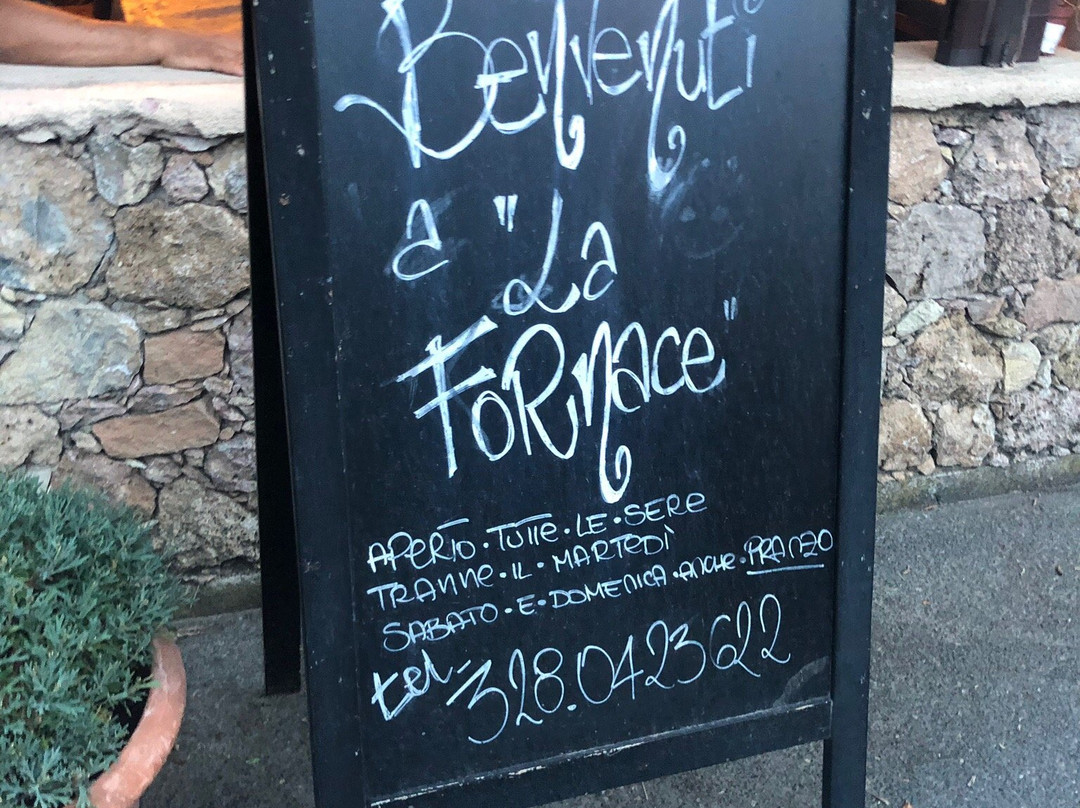 Benvenuti
a "La
FORNace"
APERTO·TUTTe·LE·SERe
TRANNe·IL·MARTEDÌ
SABATO·E·DOMENICA·ANCHe·PRANZO
tel- 328.0423622